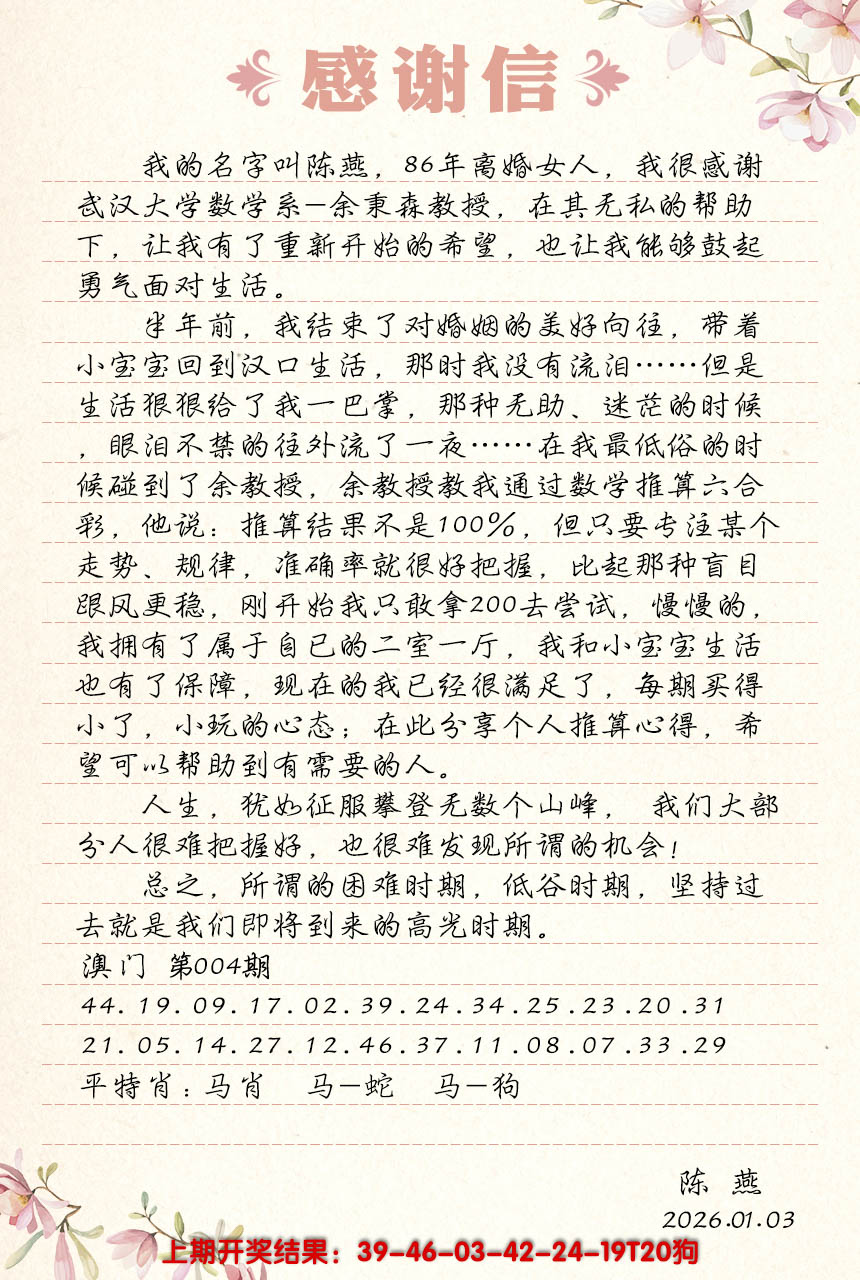 感谢信
我的名字叫陈燕，86年离婚女人，我很感谢
武汉大学数学系—余秉森教授，在其无私的帮助
下，让我有了重新开始的希望，也让我能够鼓起
勇气面对生活。
半年前，我结束了对婚姻的美好向往，带着
小宝宝回到汉口生活，那时我没有流泪……但是
生活狠狠给了我一巴掌，那种无助、迷茫的时候
，眼泪不禁的往外流了一夜……在我最低俗的时
候碰到了余教授，余教授教我通过数学推算六合
彩，他说：推算结果不是100%，但只要专注某个
走势、规律，准确率就很好把握，比起那种盲目
跟风更稳，刚开始我只敢拿200去尝试，慢慢的，
我拥有了属于自已的二室一厅，我和小宝宝生活
也有了保障，现在的我已经很满足了，每期买得
小了，小玩的心态；在此分享个人推算心得，希
望可以帮助到有需要的人。
人生，犹如征服攀登无数个山峰， 我们大部
分人很难把握好，也很难发现所谓的机会！
总之，所谓的困难时期，低谷时期，坚持过
去就是我们即将到来的高光时期。
澳门 第004期
44.19.09.17.02.39.24.34.25.23.20.31
21.05.14.27.12.46.37.11.08.07.33.29
平特肖：马肖 马—蛇 马—狗
陈 燕
2026.01.03
上期开奖结果：39-46-03-42-24-19T20狗